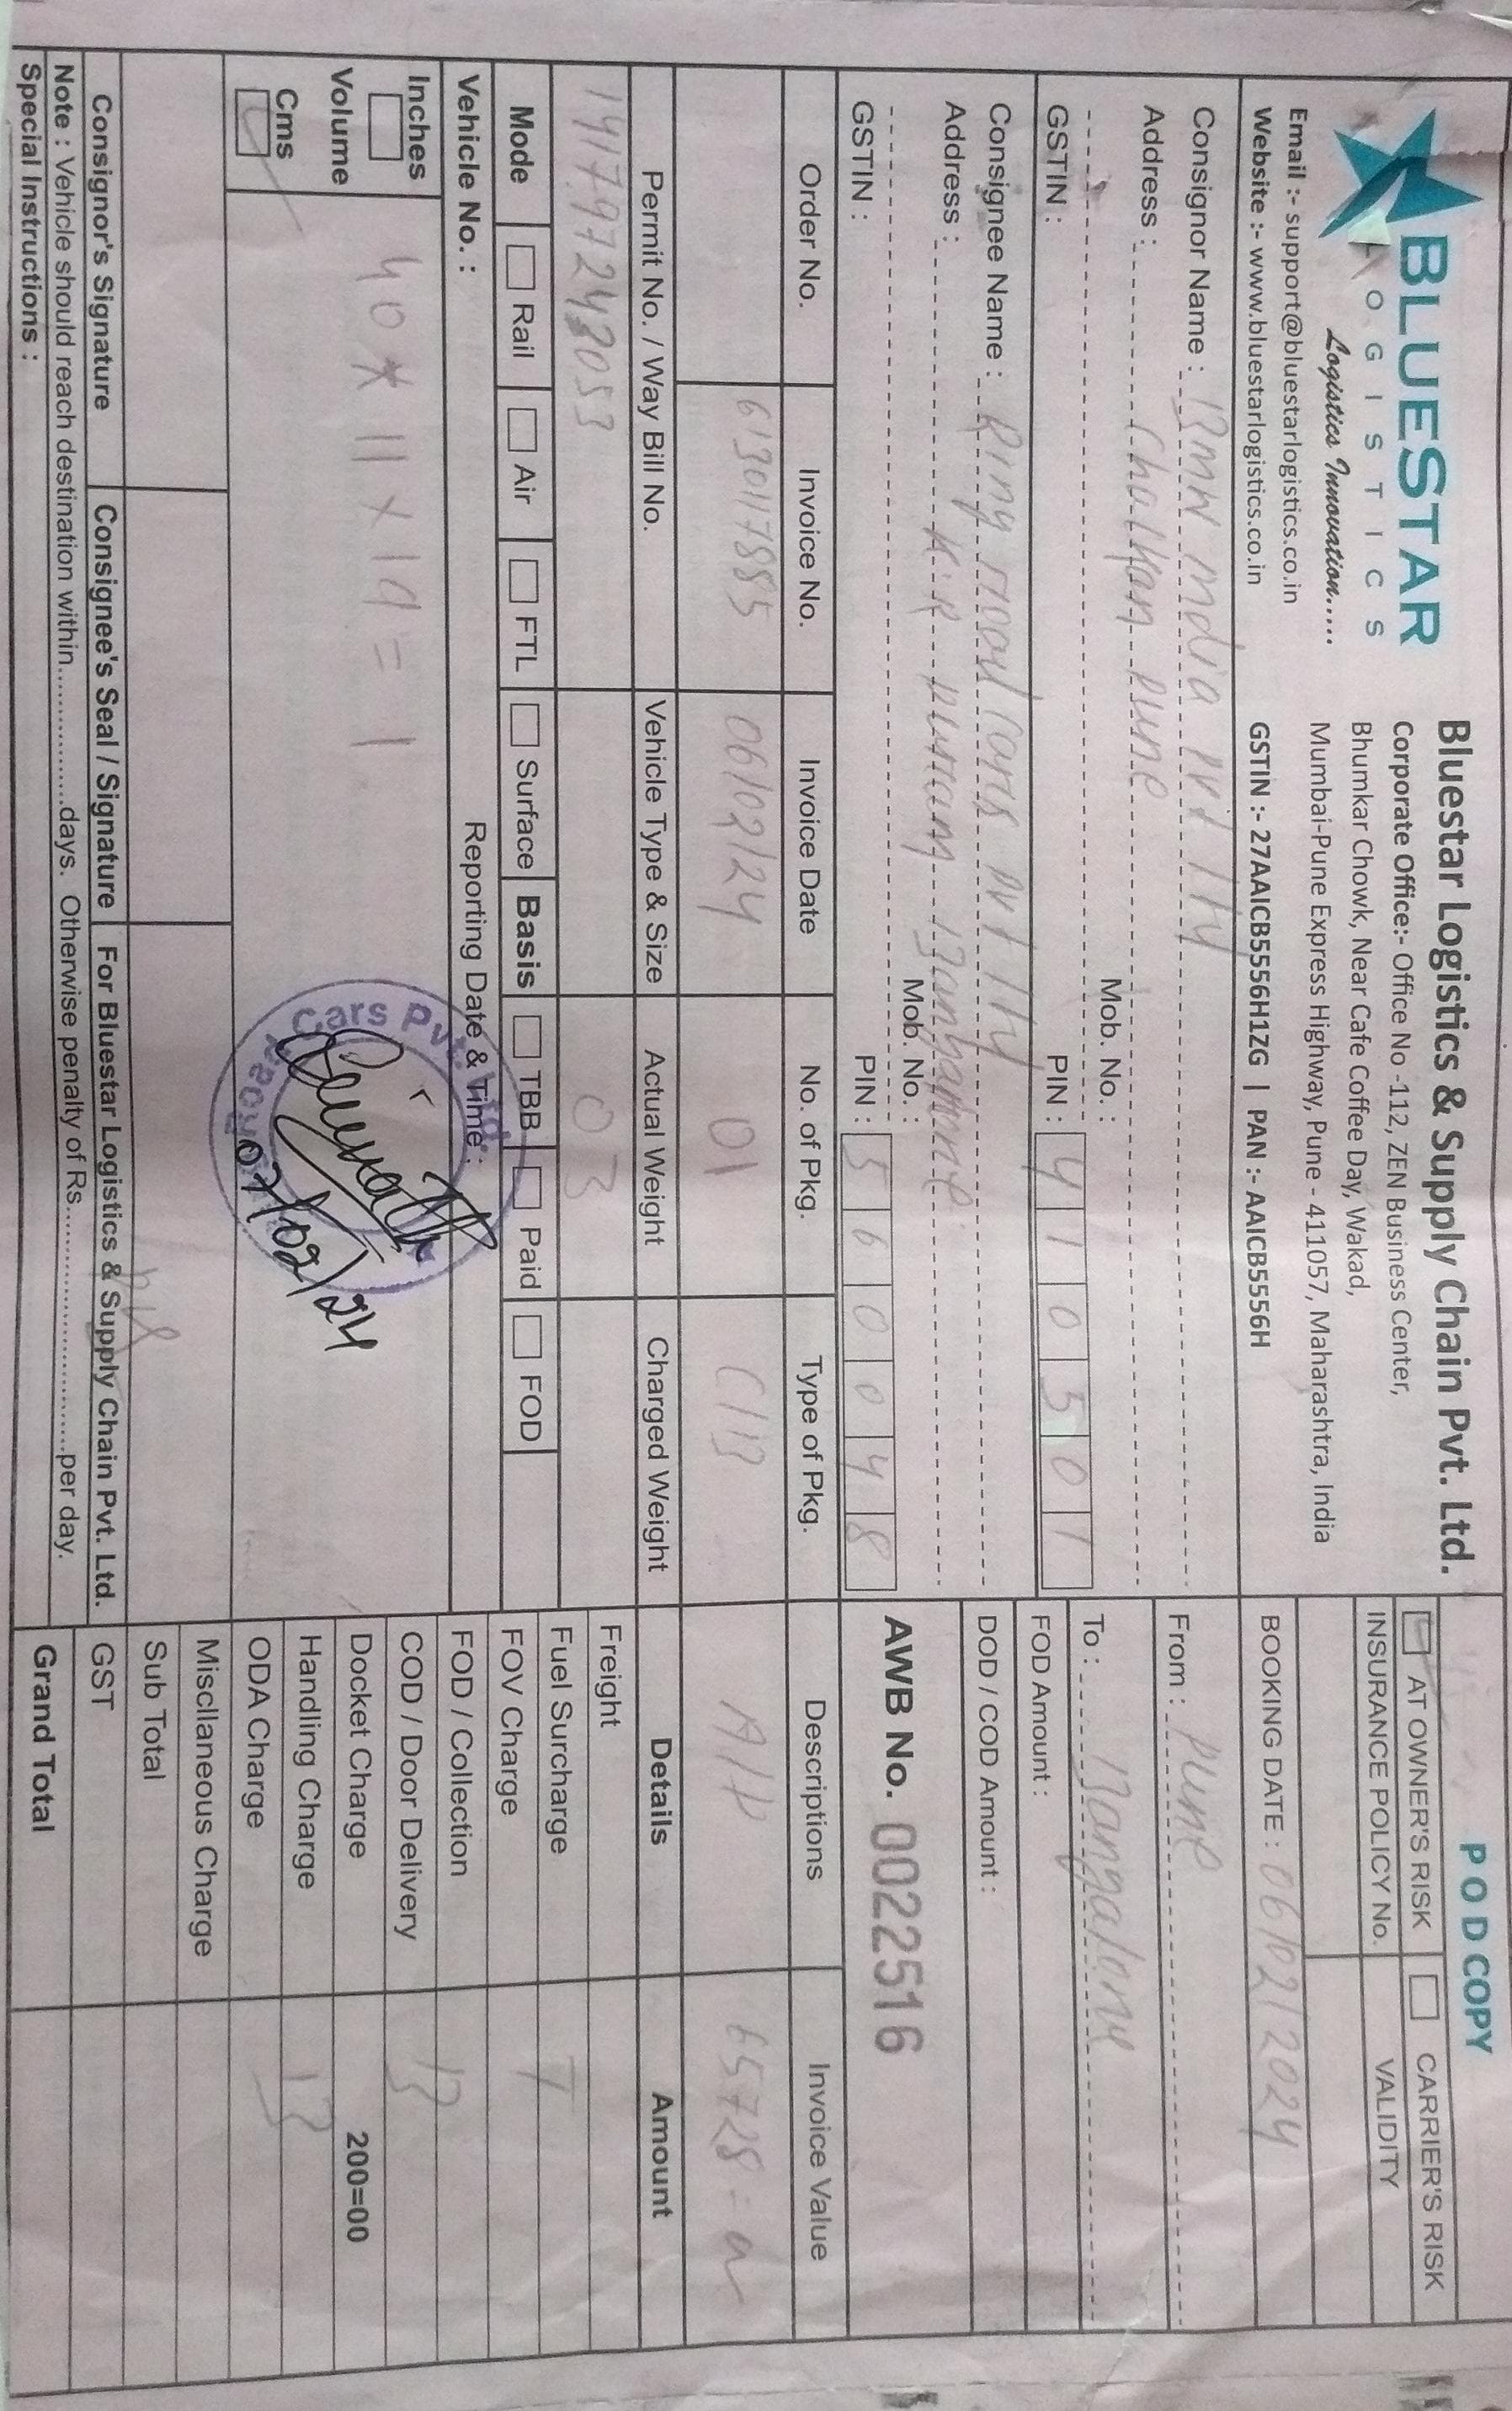 BLUESTAR
LOGISTICS
Logistics Innovation.....
Email :- support@bluestarlogistics.co.in
Website :- www.bluestarlogistics.co.in
Bluestar Logistics & Supply Chain Pvt. Ltd.
Corporate Office:- Office No -112, ZEN Business Center,
Bhumkar Chowk, Near Cafe Coffee Day, Wakad,
Mumbai-Pune Express Highway, Pune - 411057, Maharashtra, India
GSTIN :- 27AAICB5556H1ZG | PAN :- AAICB5556H
POD COPY
AT OWNER'S RISK CARRIER'S RISK
INSURANCE POLICY No. VALIDITY
BOOKING DATE : 06/02/2024
Consignor Name : BMW India Pvt lty
Address : Chalkan Pune
Mob. No. :
GSTIN : PIN : 410501
From : Pune
To : Bangalore
FOD Amount :
DOD / COD Amount :
AWB No. 0022516
Consignee Name : Ring road cars Pvt lty
Address : K.R Puram Bangalore
Mob. No. :
GSTIN : PIN : 560048
Order No. Invoice No. Invoice Date No. of Pkg. Type of Pkg. Descriptions Invoice Value
6130117885 06/02/24 01 C/B A/P 65728=
Permit No. / Way Bill No. Vehicle Type & Size Actual Weight Charged Weight Details Amount
03
Freight
Fuel Surcharge T
FOV Charge
FOD / Collection
COD / Door Delivery B
Docket Charge 200=00
Handling Charge B
ODA Charge
Miscllaneous Charge
Sub Total
GST
Grand Total
Mode Rail Air FTL Surface Basis TBB Paid FOD
Vehicle No. : Reporting Date & Time :
Inches
Volume
Cms
40 * 11 x 19 = 1
Cars Pvt. Ltd.
07/02/24
Consignor's Signature Consignee's Seal / Signature For Bluestar Logistics & Supply Chain Pvt. Ltd.
Note : Vehicle should reach destination within.................days. Otherwise penalty of Rs..............................per day.
Special Instructions :